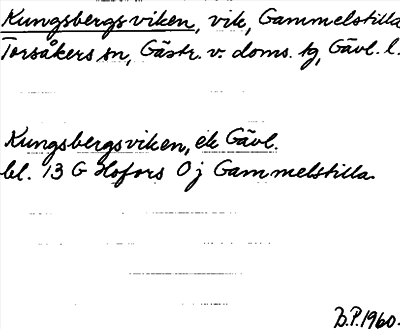 Kungsbergsviken, vik, Gammelstilla
Torsåkers sn, Gästr. v. doms. tg, Gävl. l.
Kungsbergsviken, ek Gävl.
bl. 13 G Hofors 0 j Gammelstilla.
B.P. 1960.